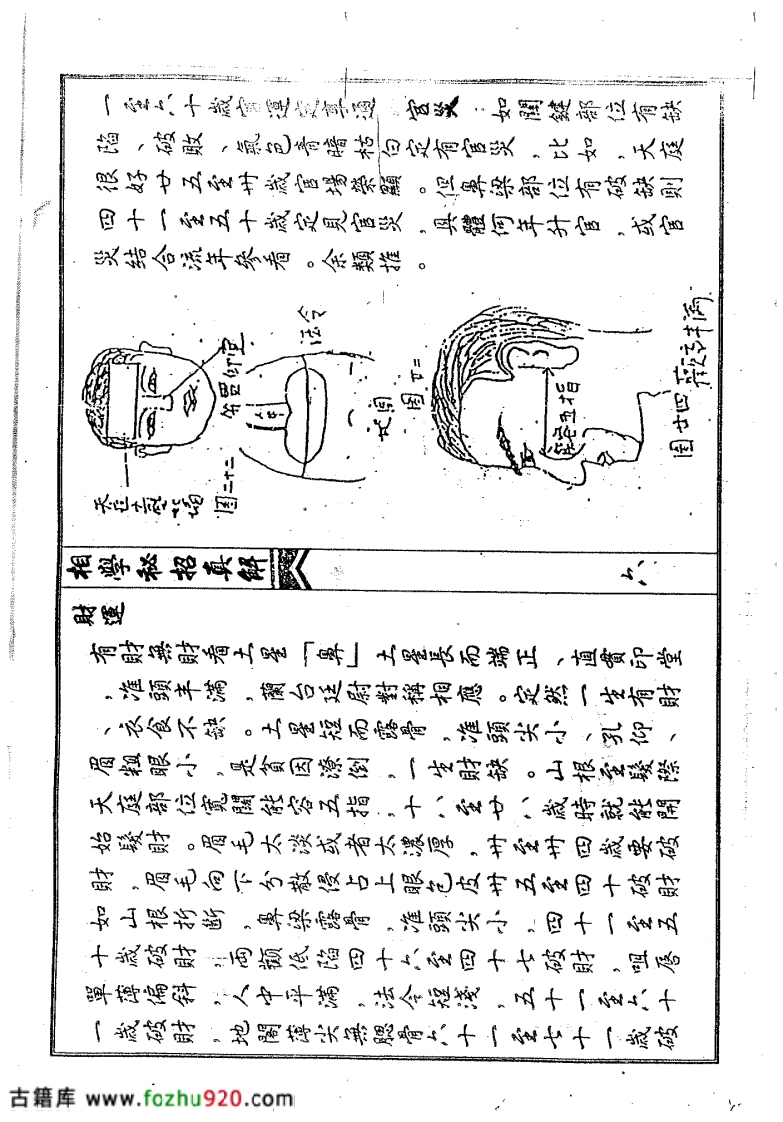 一至六十歲官運定亨通。官災：如關鍵部位有缺
陷、破敗、氣色青暗枯白定有官災，比如，天庭
很好廿五至卅歲官場榮顯。但鼻梁部位有破缺則
四十一至五十歲定見官災，具體何年升官，或官
災結合流年參看。余類推。
法令
圖廿二
圖廿三
寬五指
圖廿四
相學秘招真解
六
財運
有財無財看土星「鼻」土星長而端正、直貫印堂
，准頭丰滿，蘭台廷尉對稱相應。定然一生有財
、衣食不缺。土星短而露骨，准頭尖小、孔仰、
眉粗眼小，是貧困潦倒，一生財缺。山根至髮際
天庭部位寬闊能容五指，十八至廿八歲時就能開
始發財。眉毛太淡或者太濃厚，卅至卅四歲要破
財，眉毛向下分散侵占上眼包皮卅五至四十破財
如山根折斷，鼻梁露骨，准頭尖小，四十一至五
十歲破財，兩顴低陷四十六至四十七破財，咀唇
單薄偏斜，人中平滿，法令短淺，五十一至六十
一歲破財，地閣薄尖無腮骨六十一至七十一歲破
古籍库 www.fozhu920.com